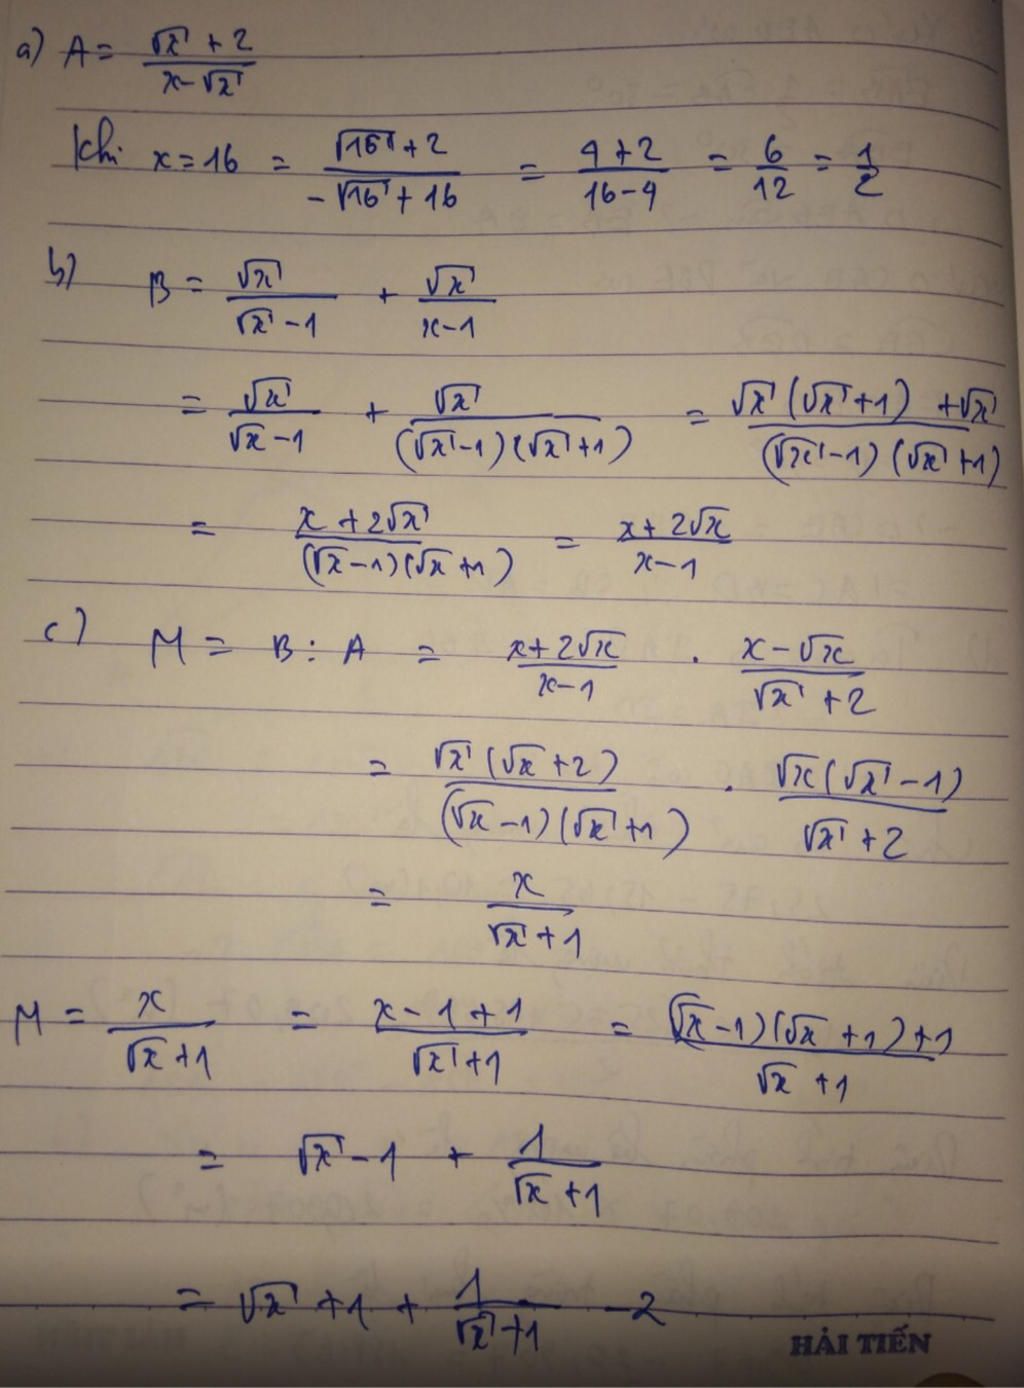 a) A = (√x + 2)/(x - √x)
Khi x = 16 = (√16 + 2)/(-√16 + 16) = (4 + 2)/(16 - 4) = 6/12 = 1/2
b) B = √x/(√x - 1) + √x/(x - 1)
= √x/(√x - 1) + √x/((√x - 1)(√x + 1)) = (√x(√x + 1) + √x)/((√x - 1)(√x + 1))
= (x + 2√x)/((√x - 1)(√x + 1)) = (x + 2√x)/(x - 1)
c) M = B : A = (x + 2√x)/(x - 1) . (x - √x)/(√x + 2)
= (√x(√x + 2))/((√x - 1)(√x + 1)) . (√x(√x - 1))/(√x + 2)
= x/(√x + 1)
M = x/(√x + 1) = (x - 1 + 1)/(√x + 1) = ((√x - 1)(√x + 1) + 1)/(√x + 1)
= √x - 1 + 1/(√x + 1)
= √x + 1 + 1/(√x + 1) - 2
HẢI TIẾN